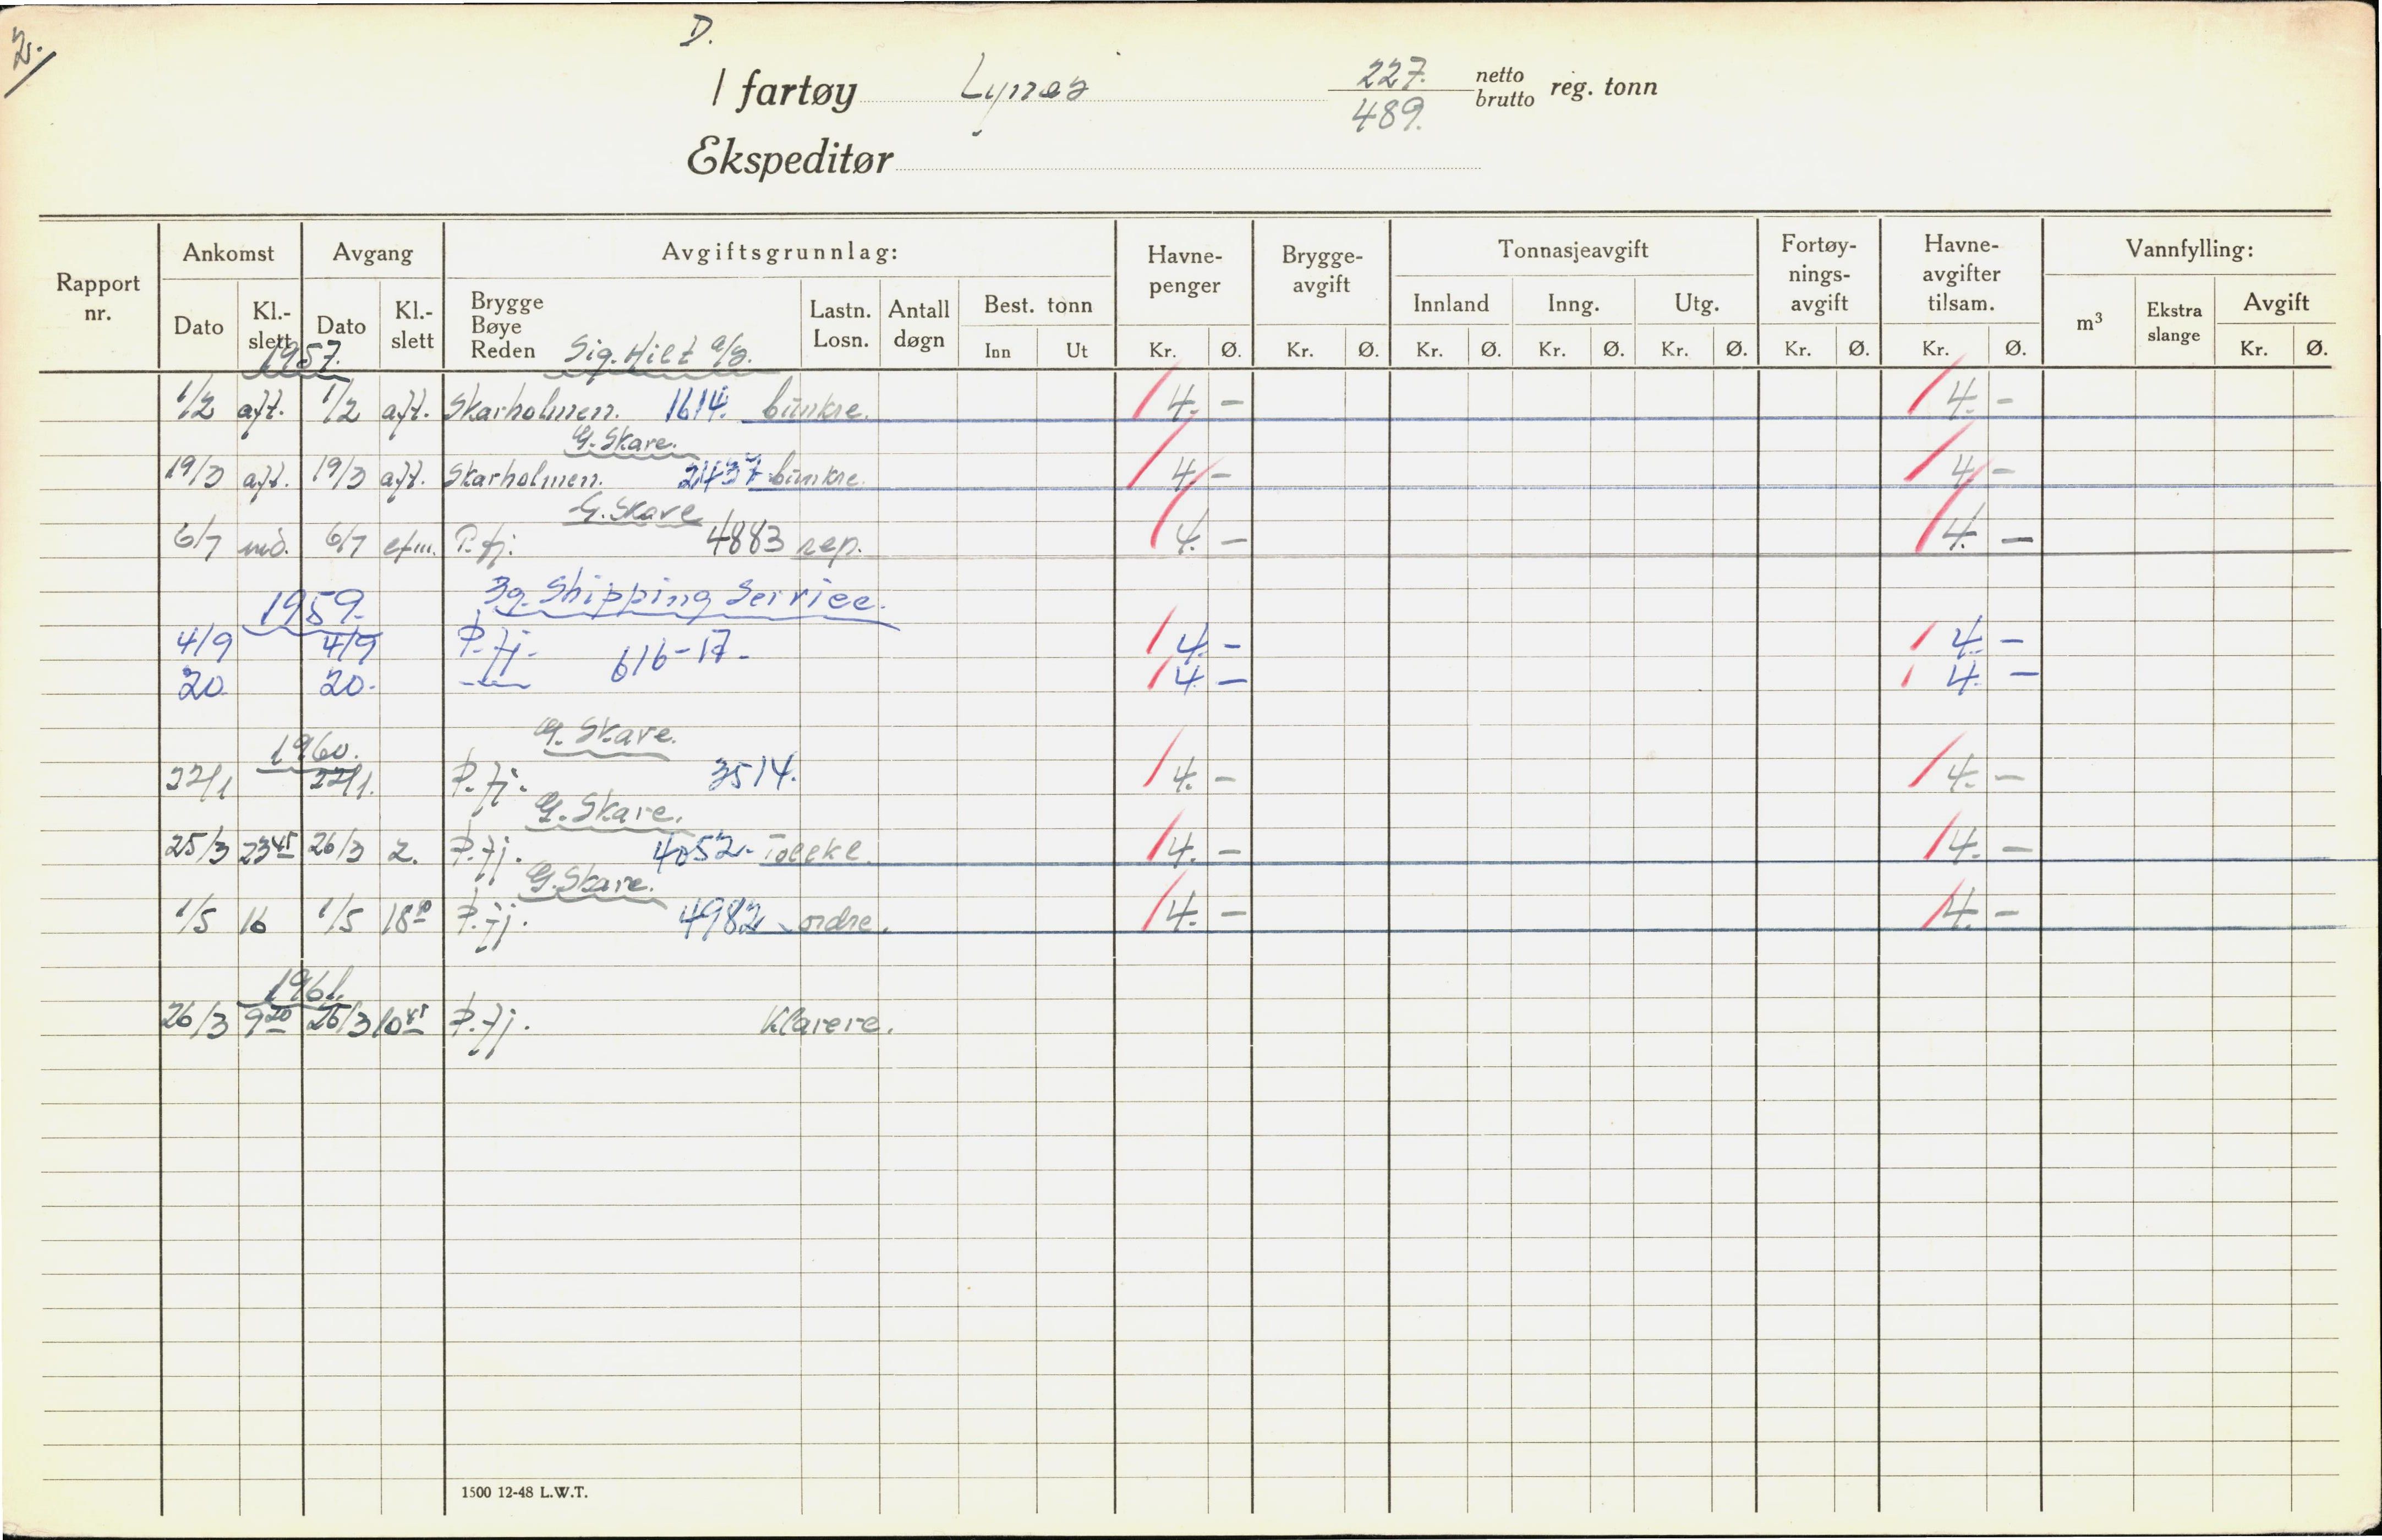 2.
D.
/ fartøy Lynes 227. netto reg. tonn
489. brutto
Ekspeditør
Rapport nr. Ankomst Avgang Avgiftsgrunnlag: Havne-penger Brygge-avgift Tonnasjeavgift Fortøy-nings-avgift Havne-avgifter tilsam. Vannfylling:
Dato Kl.-slett Dato Kl.-slett Brygge Bøye Reden Lastn. Losn. Antall døgn Best. tonn Innland Inng. Utg. m³ Ekstra slange Avgift
Inn Ut Kr. Ø. Kr. Ø. Kr. Ø. Kr. Ø. Kr. Ø. Kr. Ø. Kr. Ø. Kr. Ø.
1957. Sig. Hilt a/s.
1/2 aft. 1/2 aft. Skarholmen. 1614. bunkre. 4. - 4. -
G. Skare.
19/3 aft. 19/3 aft. Skarholmen. 2437 bunkre. 4. - 4. -
G. Skare
6/7 md. 6/7 efm. P. fj. 4883 rep. 4. - 4. -
1959. Shipping Service.
4/9 4/9 P. fj. 616-17. 4. - 4. -
20. 20. -"- 4. - 4. -
1960. G. Skare.
22/1 22/1. P. fj. 3514. 4. - 4. -
G. Skare.
25/3 23 45 26/3 2. P. fj. 4052. 4. - 4. -
G. Skare.
1/5 16 1/5 18 P. fj. 4982 ordre. 4. - 4. -
1961.
26/3 9 20 26/3 10 45 P. fj. Klarere.
1500 12-48 L.W.T.